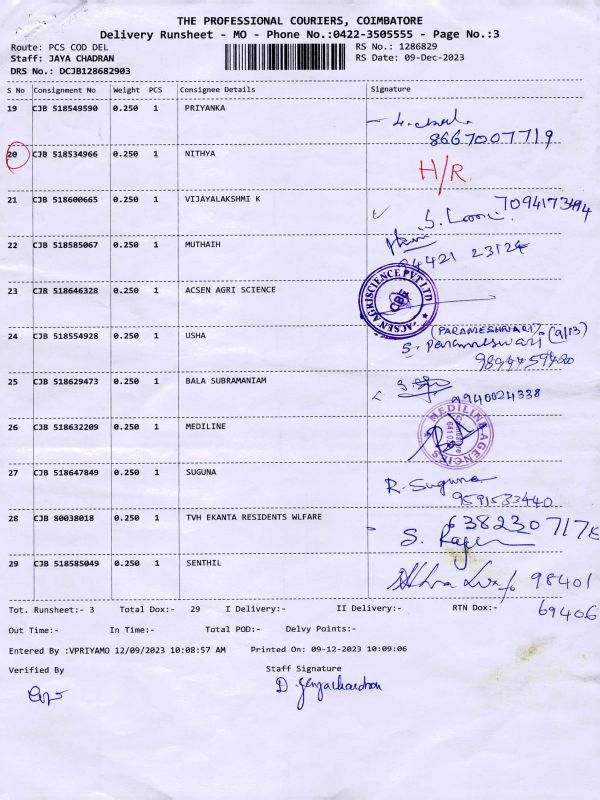 THE PROFESSIONAL COURIERS, COIMBATORE
Delivery Runsheet - MO - Phone No.:0422-3505555 - Page No.:3
Route: PCS COD DEL
RS No.: 1286829
Staff: JAYA CHADRAN
RS Date: 09-Dec-2023
DRS No.: DCJB128682903
S No Consignment No Weight PCS Consignee Details Signature
19 CJB 518549590 0.250 1 PRIYANKA
8667007719
20 CJB 518534966 0.250 1 NITHYA H/R
21 CJB 518600665 0.250 1 VIJAYALAKSHMI K
22 CJB 518585067 0.250 1 MUTHAIH
94421 23124
23 CJB 518646328 0.250 1 ACSEN AGRI SCIENCE
ACSEN AGRISCIENCE PVT LTD CBE
24 CJB 518554928 0.250 1 USHA
(PARAMESHWARI)
S. Parameswari
9894459420
25 CJB 518629473 0.250 1 BALA SUBRAMANIAM
9940024338
26 CJB 518632209 0.250 1 MEDILINE
MEDILINE AGENCIES
27 CJB 518647849 0.250 1 SUGUNA
R. Suguna
9591533440
28 CJB 80038018 0.250 1 TVH EKANTA RESIDENTS WLFARE
29 CJB 518585049 0.250 1 SENTHIL
98401
69406
Tot. Runsheet:- 3 Total Dox:- 29 I Delivery:- II Delivery:- RTN Dox:-
Out Time:- In Time:- Total POD:- Delvy Points:-
Entered By :VPRIYAMO 12/09/2023 10:08:57 AM Printed On: 09-12-2023 10:09:06
Verified By Staff Signature